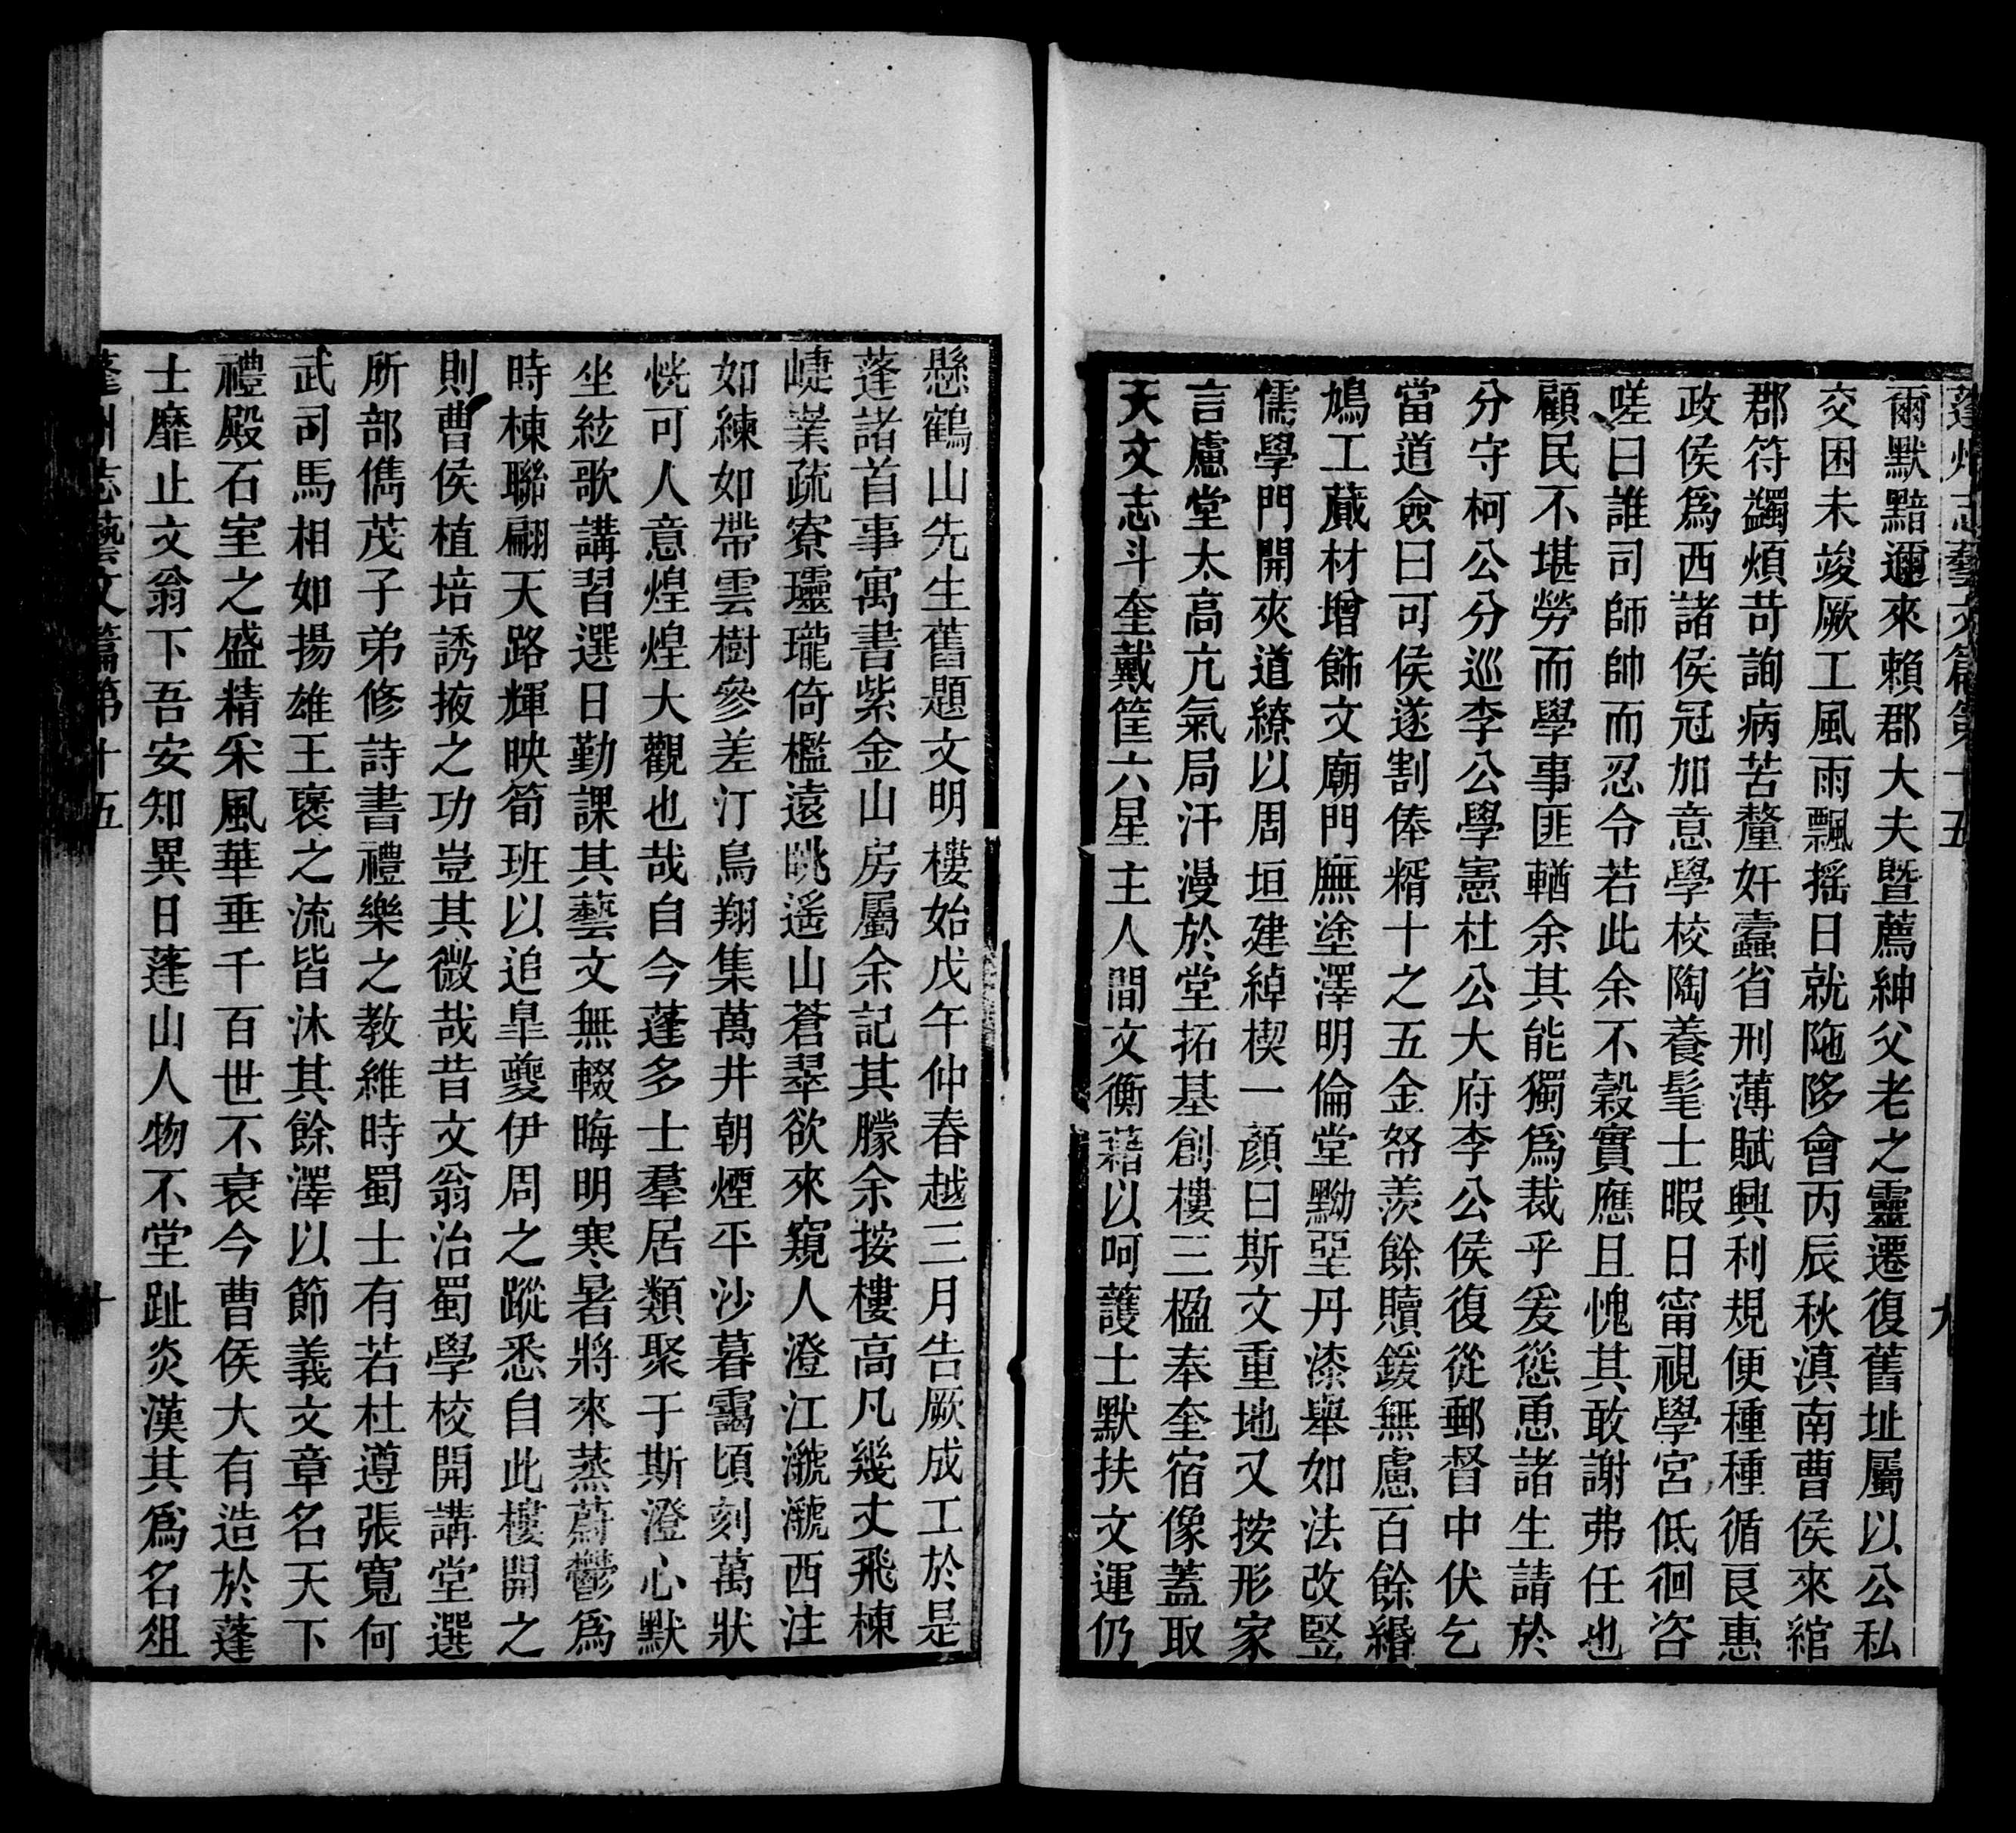 蓬州志藝文篇第十五 九
爾默黯邇來賴郡大夫暨薦紳父老之靈遷復舊址屬以公私
交困未竣厥工風雨飄搖日就陁陊會丙辰秋滇南曹侯來綰
郡符蠲煩苛詢病苦釐奸蠹省刑薄賦興利規便種種循良惠
政侯爲西諸侯冠加意學校陶養髦士暇日甯視學宮低徊咨
嗟曰誰司師帥而忍令若此余不穀實應且愧其敢謝弗任也
顧民不堪勞而學事匪輶余其能獨爲裁乎爰慫恿諸生請於
分守柯公分巡李公學憲杜公大府李公侯復從郵督中伏乞
當道僉曰可侯遂割俸糈十之五金帑羨餘贖鍰無慮百餘緡
鳩工蕆材增飾文廟門廡塗澤明倫堂黝堊丹漆舉如法改竪
儒學門開夾道繚以周垣建綽楔一顏曰斯文重地又按形家
言慮堂太高亢氣局汗漫於堂拓基創樓三楹奉奎宿像蓋取
天文志斗奎戴筐六星主人間文衡藉以呵護士默扶文運仍
懸鶴山先生舊題文明樓始戊午仲春越三月告厥成工於是
蓬諸首事寓書紫金山房屬余記其朦余按樓高凡幾丈飛棟
崨嶪疏寮瓏瓏倚檻遠眺遥山蒼翠欲來窺人澄江㶁㶁西注
如練如帶雲樹參差汀鳥翔集萬井朝煙平沙暮靄頃刻萬狀
恍可人意煌煌大觀也哉自今蓬多士羣居類聚于斯澄心默
坐絃歌講習選日勤課其藝文無輟晦明寒暑將來蒸蔚鬱爲
時棟聯翩天路輝映筍班以追臯夔伊周之蹤悉自此樓開之
則曹侯植培誘掖之功豈其微哉昔文翁治蜀學校開講堂選
所部儁茂子弟修詩書禮樂之教維時蜀士有若杜遵張寬何
武司馬相如揚雄王褒之流皆沐其餘澤以節義文章名天下
禮殿石室之盛精采風華垂千百世不衰今曹侯大有造於蓬
士靡止文翁下吾安知異日蓬山人物不堂趾炎漢其爲名俎
蓬州志藝文篇第十五 十